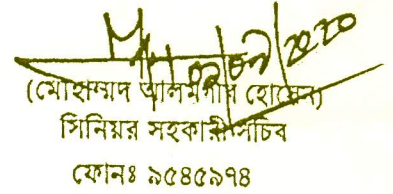 (মোহাম্মদ আলমগীর হোসেন)
সিনিয়র সহকারী সচিব
ফোনঃ ৯৫৪৫৯৭৪